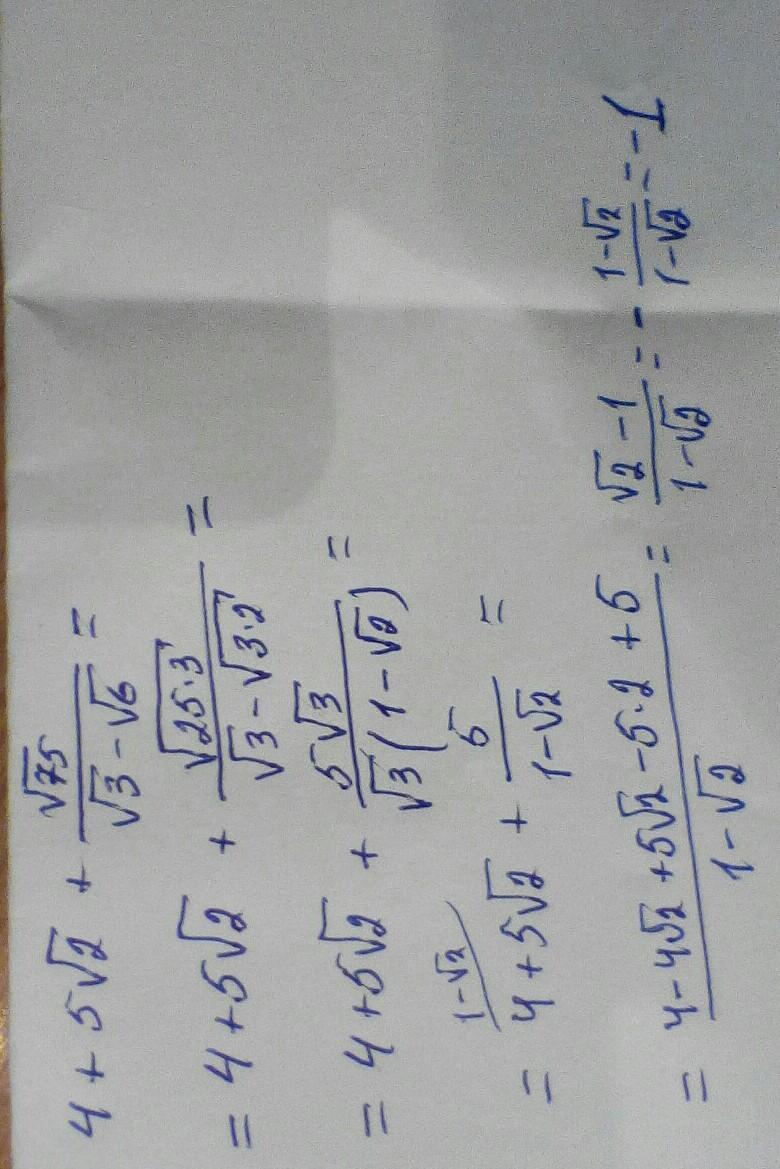 4 + 5√2 + √75/(√3 - √6) =
= 4 + 5√2 + √(25·3)/(√3 - √(3·2)) =
= 4 + 5√2 + 5√3/(√3(1 - √2)) =
= 4 + 5√2 (1-√2 + 5/(1-√2) =
= (4 - 4√2 + 5√2 - 5·2 + 5)/(1 - √2) = (√2 - 1)/(1 - √2) = - (1-√2)/(1-√2) = -1